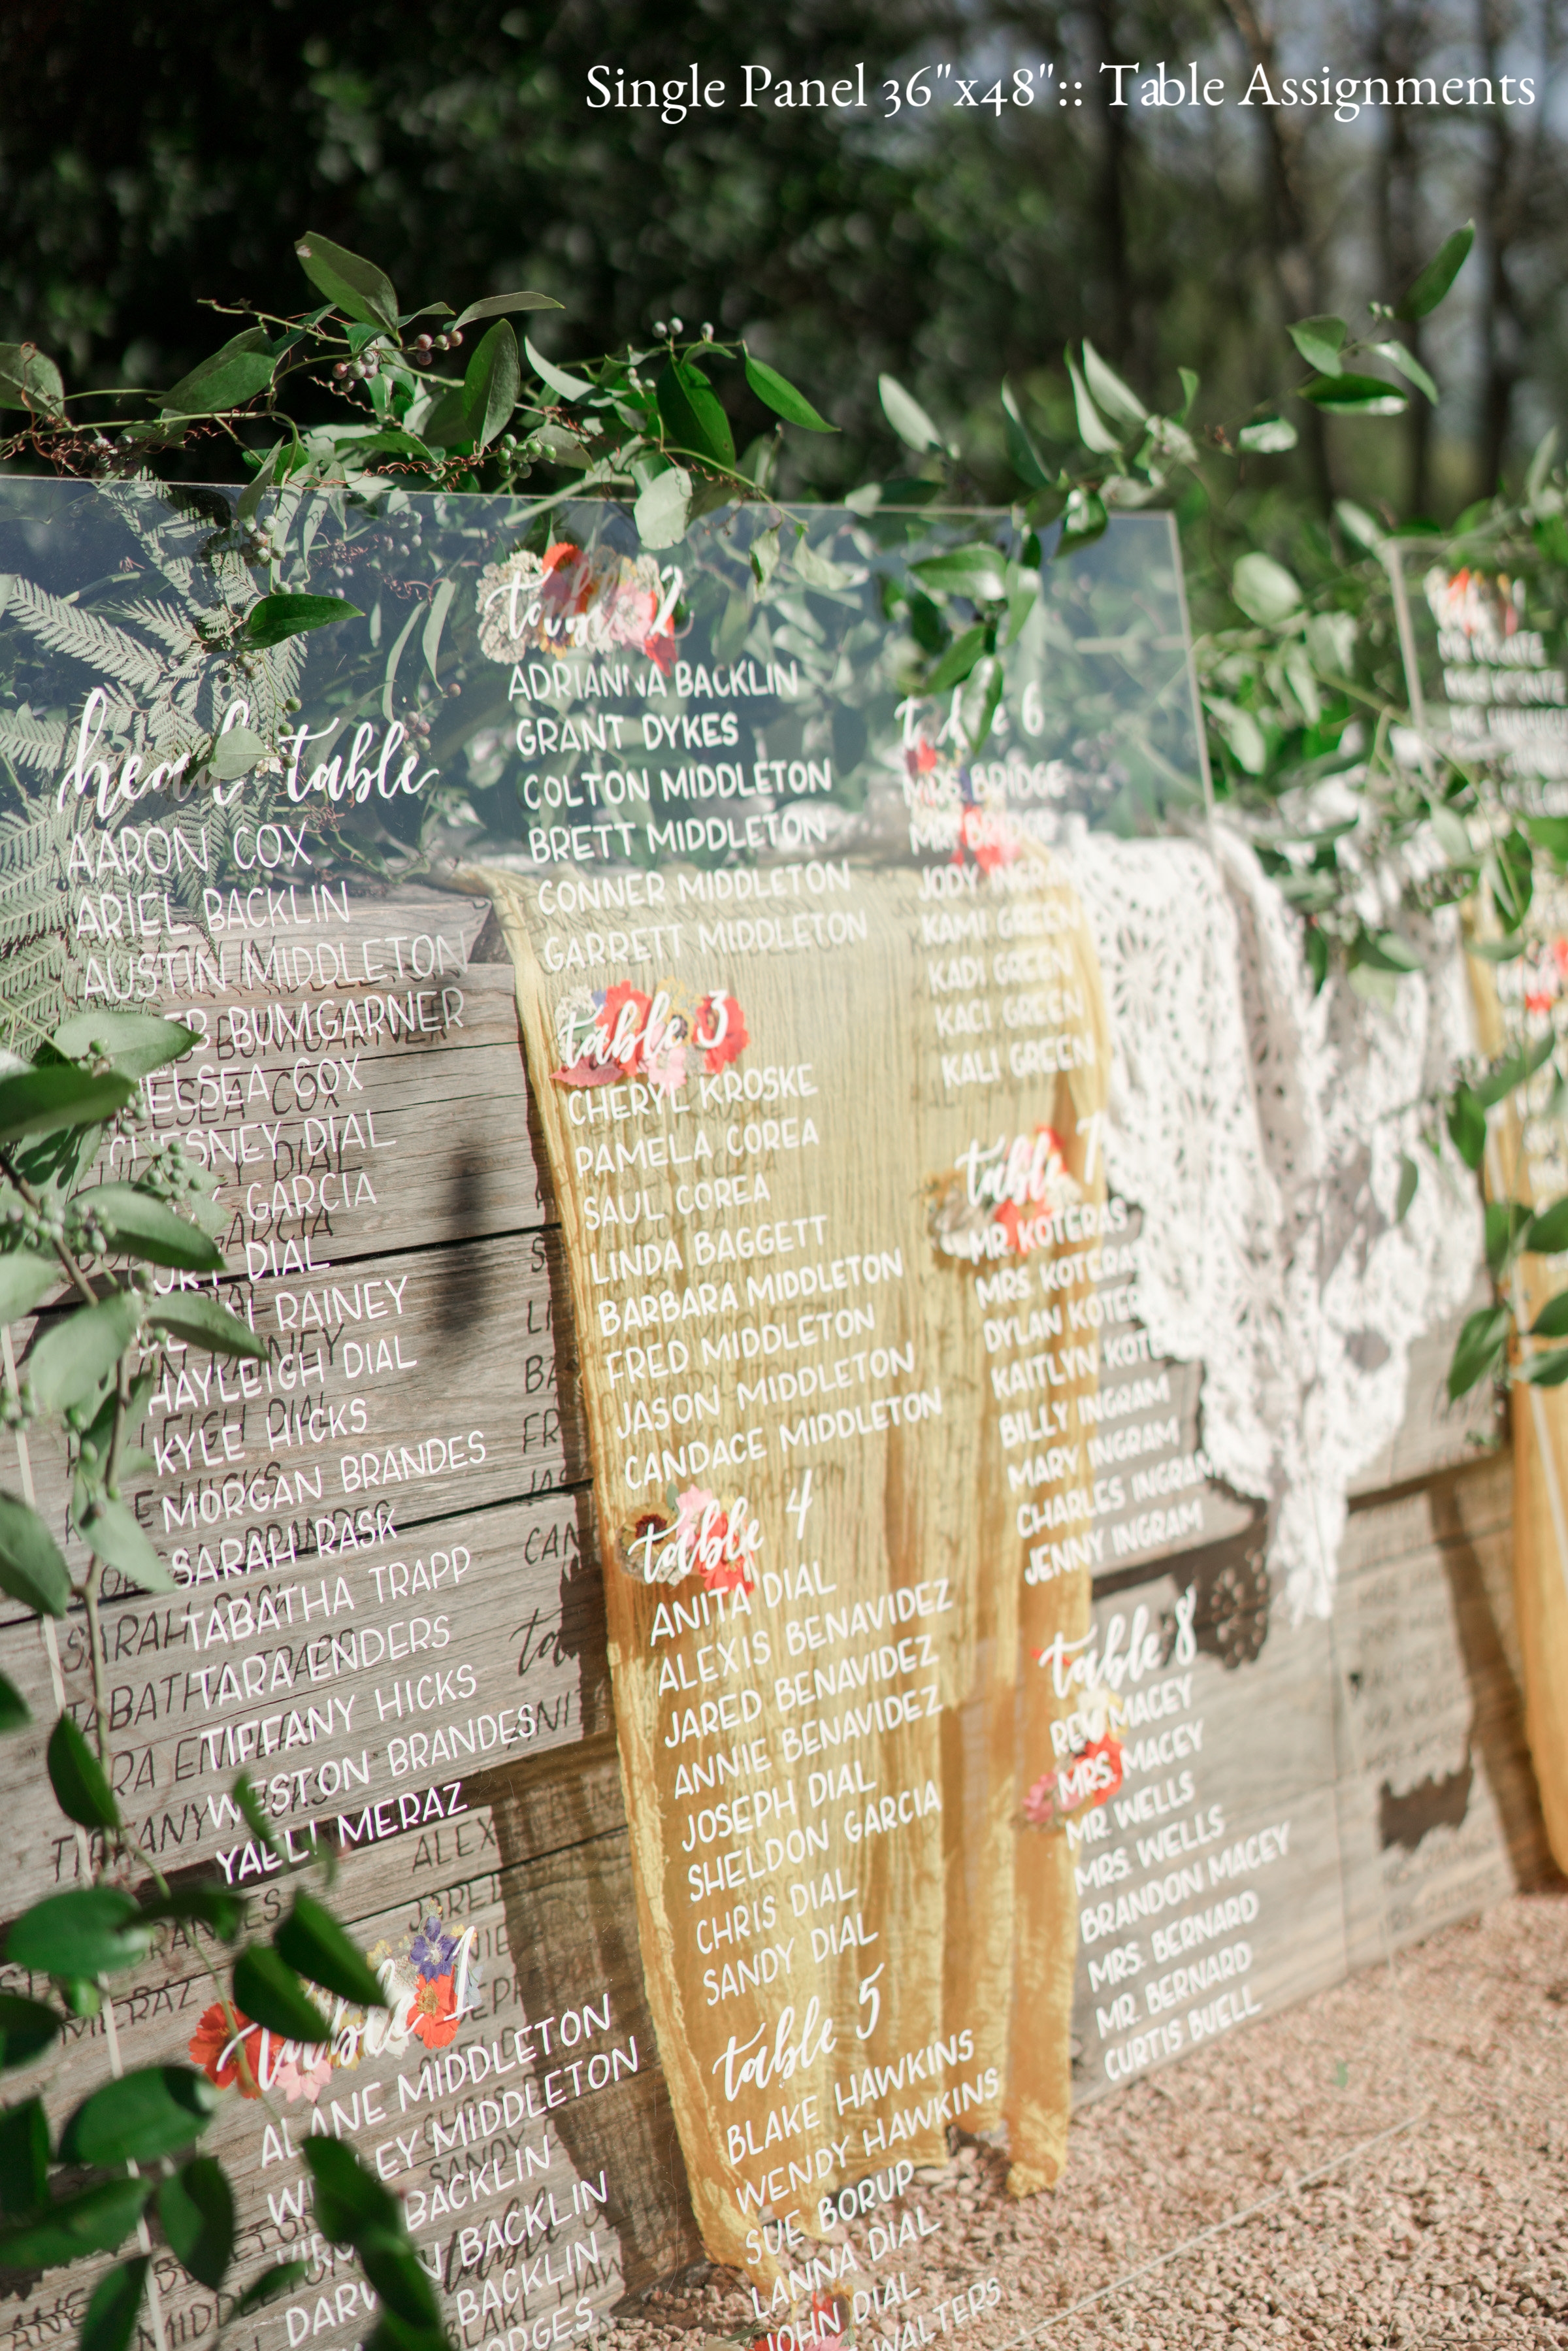 Single Panel 36"x48":: Table Assignments
head table
AARON COX
ARIEL BACKLIN
AUSTIN MIDDLETON
BUMGARNER
CHELSEA COX
CHESNEY DIAL
GARCIA
DIAL
RAINEY
HAYLEIGH DIAL
KYLE HICKS
MORGAN BRANDES
SARAH RASK
TABATHA TRAPP
TARA ENDERS
TIFFANY HICKS
WESTON BRANDES
YAELI MERAZ
table 1
ALANE MIDDLETON
WESLEY MIDDLETON
BACKLIN
BACKLIN
BACKLIN
table 2
ADRIANNA BACKLIN
GRANT DYKES
COLTON MIDDLETON
BRETT MIDDLETON
CONNER MIDDLETON
GARRETT MIDDLETON
table 3
CHERYL KROSKE
PAMELA COREA
SAUL COREA
LINDA BAGGETT
BARBARA MIDDLETON
FRED MIDDLETON
JASON MIDDLETON
CANDACE MIDDLETON
table 4
ANITA DIAL
ALEXIS BENAVIDEZ
JARED BENAVIDEZ
ANNIE BENAVIDEZ
JOSEPH DIAL
SHELDON GARCIA
CHRIS DIAL
SANDY DIAL
table 5
BLAKE HAWKINS
WENDY HAWKINS
SUE BORUP
LANNA DIAL
JOHN DIAL
WALTERS
table 6
MRS. BRIDGE
MR. BRIDGE
JODY INGRAM
KAMI GREEN
KADI GREEN
KACI GREEN
KALI GREEN
table 7
MR. KOTERAS
MRS. KOTERAS
DYLAN KOTERAS
KAITLYN KOTERAS
BILLY INGRAM
MARY INGRAM
CHARLES INGRAM
JENNY INGRAM
table 8
REV. MACEY
MRS. MACEY
MR. WELLS
MRS. WELLS
BRANDON MACEY
MRS. BERNARD
MR. BERNARD
CURTIS BUELL